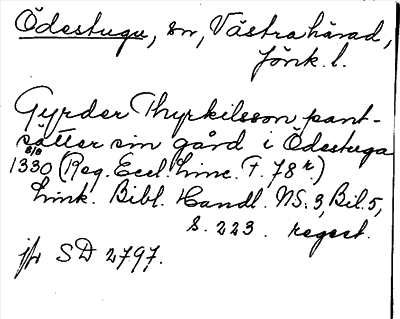 Ödestugu, sn, Västra härad,
Jönk. l.
Gyrder Thyrkilsson pant-
sätter sin gård i Ödestuga
8/8
1330 (Reg. Eccl. Linc. F. 78 r.)
Link. Bibl. Handl. NS. 3, Bil. 5,
S. 223. regest.
jfr SD 2797.